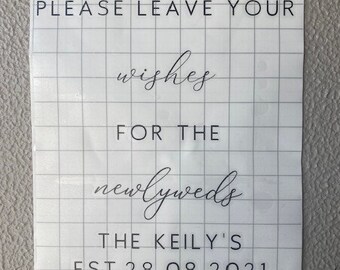 PLEASE LEAVE YOUR
wishes
FOR THE
newlyweds
THE KEILY'S
EST 28.08.2021